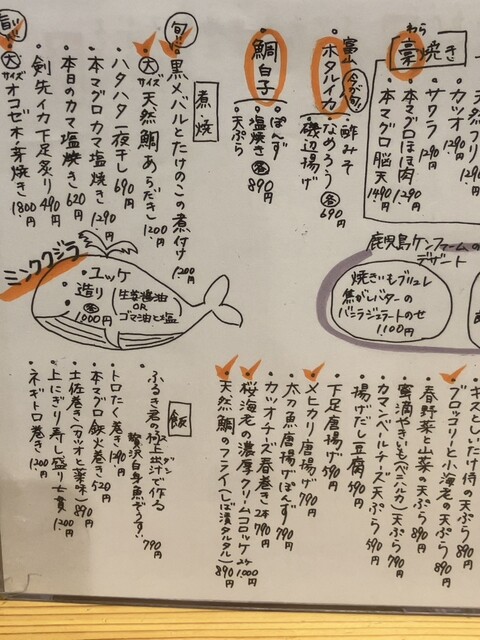 わら
藁焼き
カツオ 1290円
サワラ 1290円
本マグロほほ肉 1290円
本マグロ脳天 1490円
富山 今が旬!!
ホタルイカ
酢みそ
なめろう 各690円
磯辺揚げ
鯛白子
ぽんず
塩焼き 各890円
天ぷら
煮焼
旬だ
黒メバルとたけのこの煮付け 1200円
大サイズ 天然鯛あらだき 1200円
ハタハタ一夜干し 690円
本マグロカマ塩焼き 1290円
本日のカマ塩焼き 620円
剣先イカ下足炙り 490円
旨い
大サイズ オコゼ木芽焼き 1800円
鹿児島ケンファームの
デザート
焼きいもブリュレ
焦がしバターの
バニラジェラートのせ
1100円
ミンククジラ
ユッケ
造り
各1000円
生姜醤油
OR
ゴマ油と塩
キスとしいたけ侍の天ぷら 890円
ブロッコリーと小海老の天ぷら 890円
春野菜と山菜の天ぷら 890円
蜜滴やきいも(べにハルカ)天ぷら 790円
カマンベールチーズ天ぷら 590円
揚げだし豆腐 590円
下足唐揚げ 590円
メヒカリ唐揚げ 790円
太刀魚唐揚げぽんず 790円
カツオチーズ春巻き 2本 790円
桜海老の濃厚クリームコロッケ 2ケ 1000円
天然鯛のフライ(しば漬タルタル) 890円
飯
ふるき君の極上出汁で作る
贅沢白身魚ぞうすい 790円
トロたく巻き 1290円
本マグロ鉄火巻き 520円
土佐巻き(カツオと薬味) 890円
上にぎり寿し盛り七貫 1200円
ネギトロ巻き 1200円